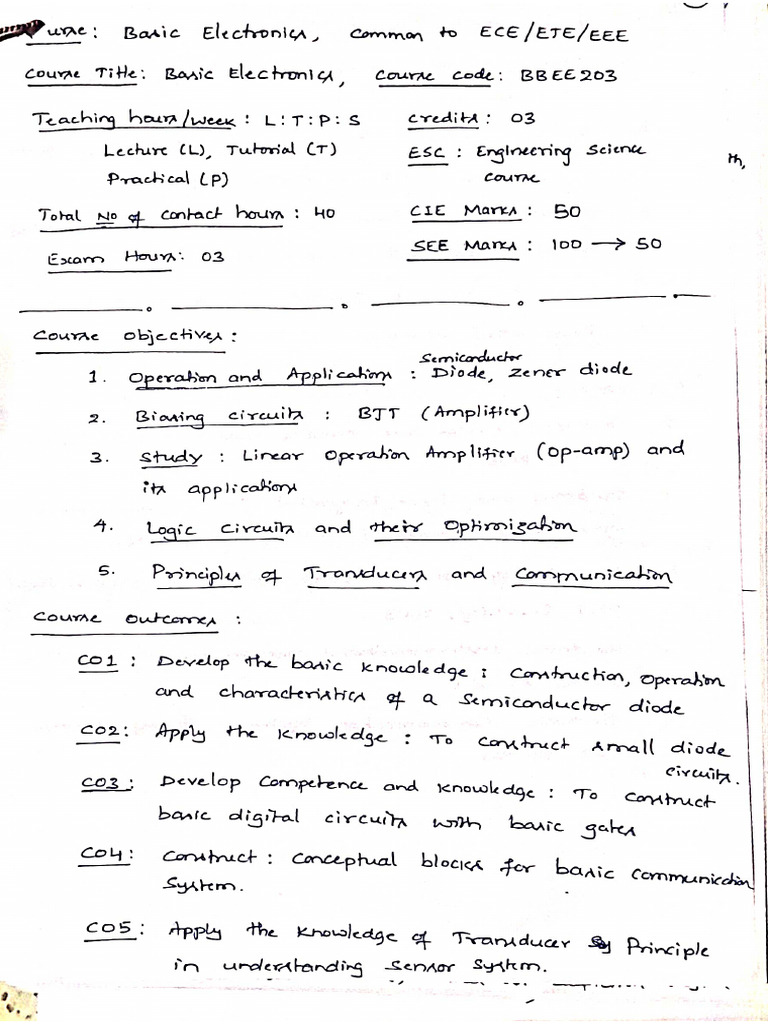 urse: Basic Electronics, Common to ECE/ETE/EEE
Course Title: Basic Electronics, Course code: BBEE203
Teaching hours/week: L:T:P:S Credits: 03
Lecture (L), Tutorial (T) ESC: Engineering Science
Practical (P) course
Total No of contact hours: 40 CIE Marks: 50
Exam Hours: 03 SEE Marks: 100 → 50
Course objectives:
1. Operation and Applications: Semiconductor Diode, Zener diode
2. Biasing circuits: BJT (Amplifier)
3. Study: Linear Operation Amplifier (Op-amp) and
its applications
4. Logic circuits and their Optimization
5. Principles of Transducers and Communication
Course outcomes:
CO1: Develop the basic knowledge: Construction, operation
and characteristics of a semiconductor diode
CO2: Apply the knowledge: To construct small diode
circuits.
CO3: Develop Competence and knowledge: To construct
basic digital circuits with basic gates
CO4: Construct: Conceptual blocks for basic communication
System.
CO5: Apply the knowledge of Transducer Principle
in understanding sensor system.